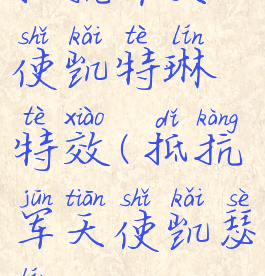 shǐ kǎi tè lín
使凯特琳
tè xiào dǐ kàng
特效(抵抗
jūn tiān shǐ kǎi sè
军天使凯瑟